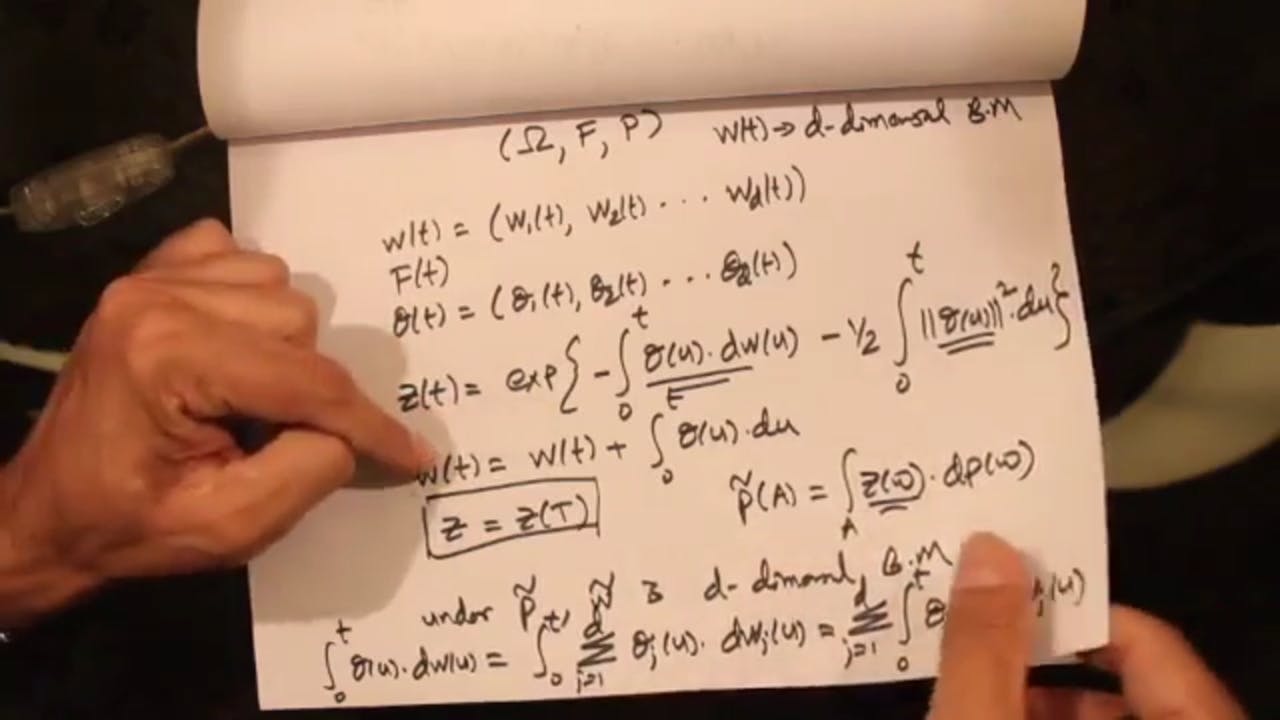 (Ω, F, P) W(t) → d-dimensal B.M
W(t) = (W₁(t), W₂(t) · · · W_d(t))
F(t)
θ(t) = (θ₁(t), θ₂(t) · · · θ_d(t))
Z(t) = exp{ -∫₀ᵗ θ(u). dW(u) - 1/2 ∫₀ᵗ ||θ(u)||². du }
W(t) = W(t) + ∫₀ᵗ θ(u). du
P̃(A) = ∫_A Z(ω). dP(ω)
Z = Z(T)
under P̃, W̃ d-dimanal B.M
∫₀ᵗ θ(u). dW(u) = ∫₀ᵗ Σ_{j=1}^d θ_j(u). dW_j(u) = Σ_{j=1}^d ∫₀ᵗ θ _j(u)